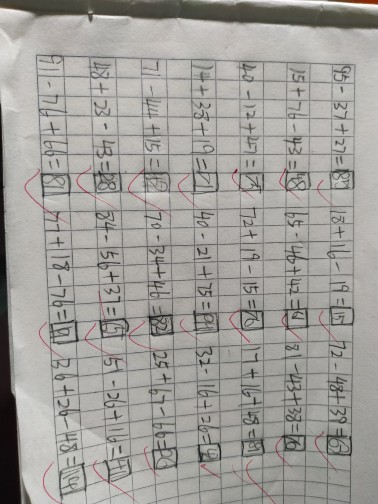 95-37+27=85 18+16-19=15 72-48+39=63
15+76-43=48 65-46+42=61
40-12+47=75 72+19-15=76 17+16+48=81
14+38+19=71 40-21+75=94 32-16+26=42
71-44+15=42 70-34+46=82 25+67-66=26
48+23-43=28 84-56+37=65 51-26+16=41
91-76+66=81 77+18-76=19 36+26-48=14